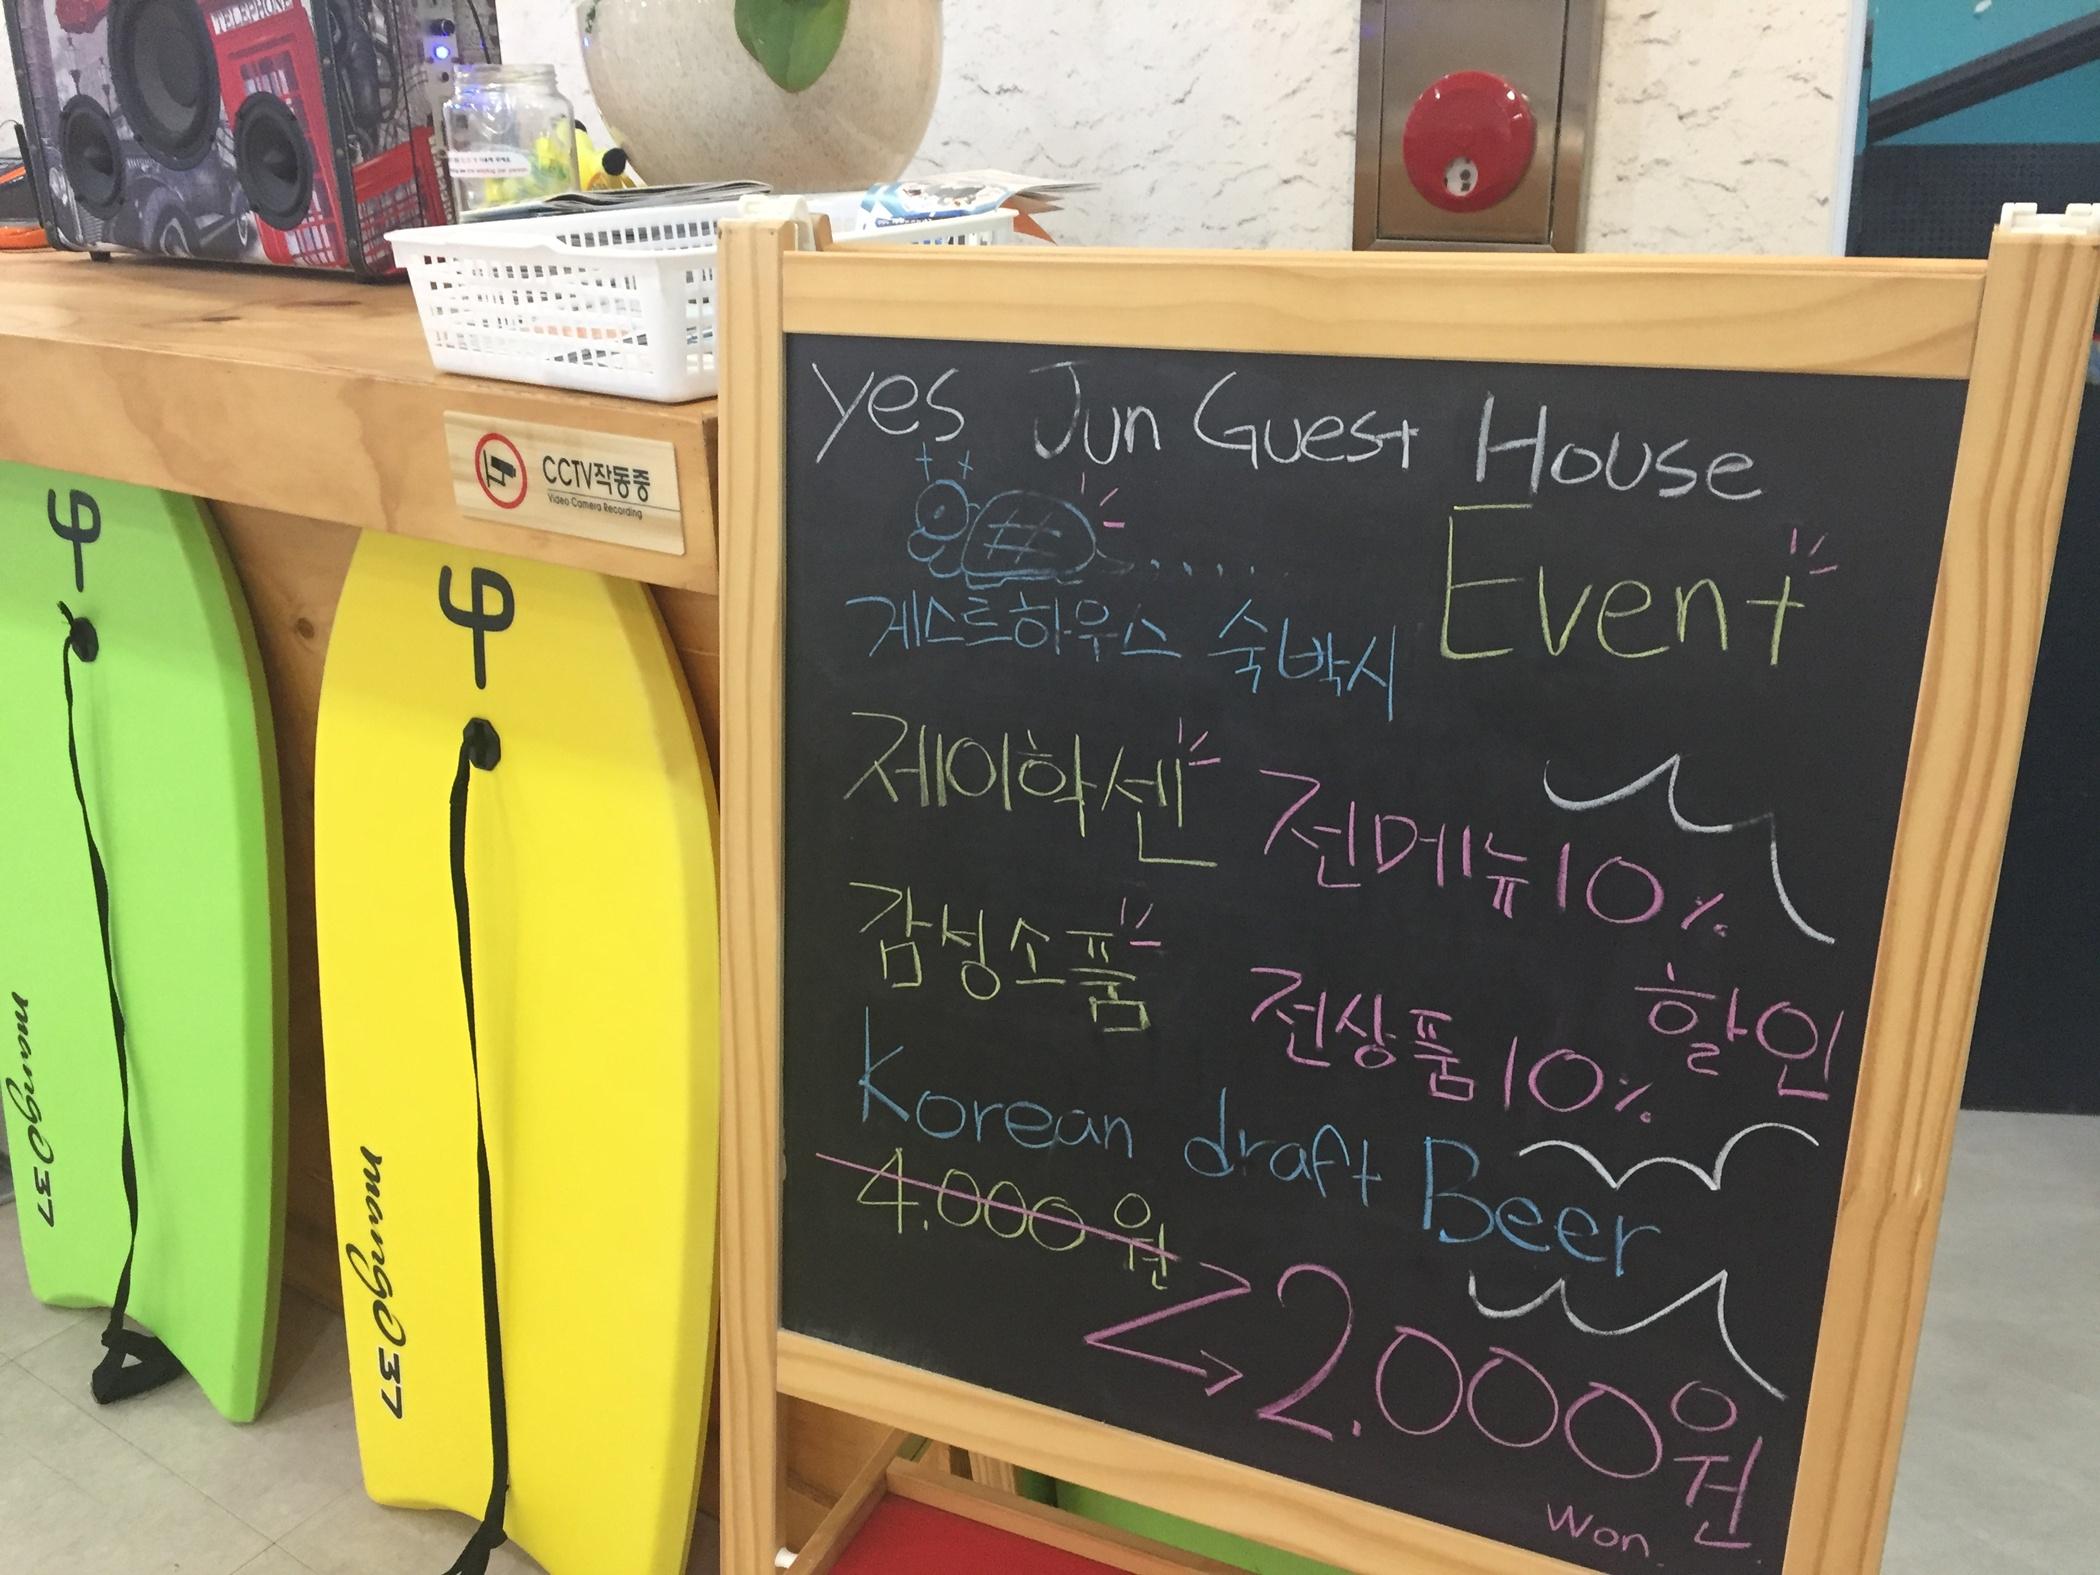 TELEPHONE
CCTV작동중
Video Camera Recording
mango37
mango37
Yes Jun Guest House
Event
게스트하우스 숙박시
제이학센 전메뉴 10%
감성소품 전상품 10% 할인
Korean draft Beer
4.000원
2.000원
Won.